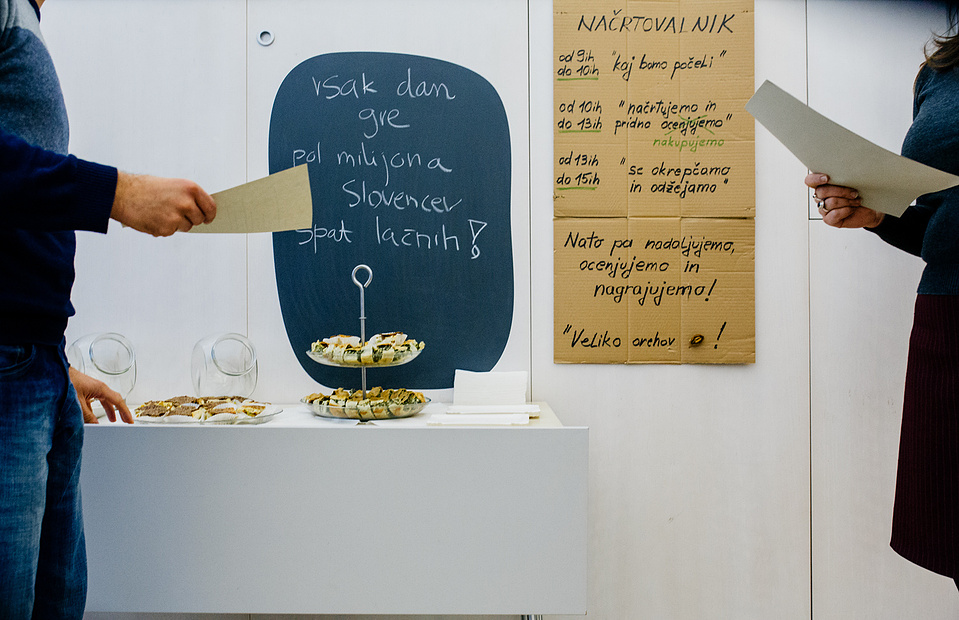 vsak dan
gre
pol milijona
Slovencev
spat lačnih!
NAČRTOVALNIK
od 9ih
do 10ih
"kaj bomo počeli"
od 10ih
do 13ih
"načrtujemo in
pridno ocenjujemo"
nakupujemo
od 13ih
do 15ih
"se okrepčamo
in odžejamo"
Nato pa nadaljujemo,
ocenjujemo in
nagrajujemo!
"Veliko orehov !